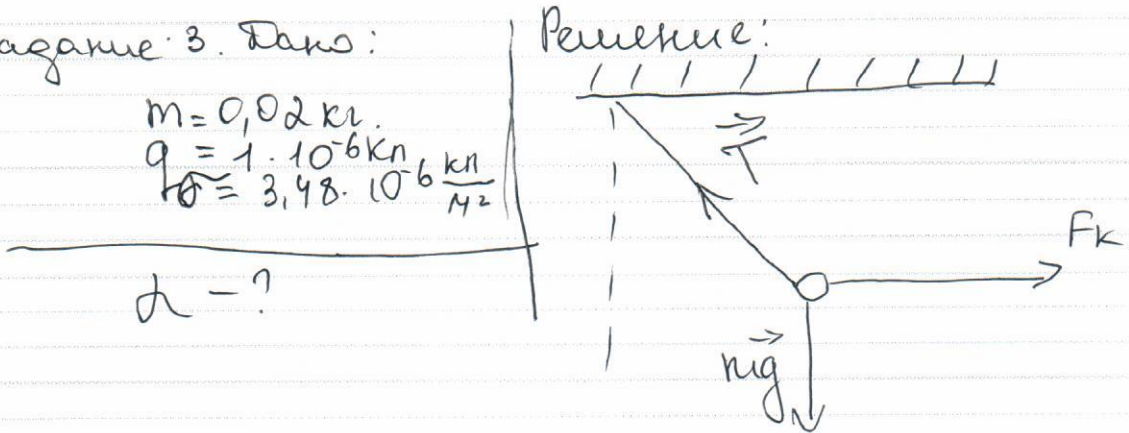 адание 3. Дано:
m = 0,02 кг.
q = 1 · 10⁻⁶ Кл
σ = 3,48 · 10⁻⁶ Кл/м²
α - ?
Решение:
T
Fк
mg